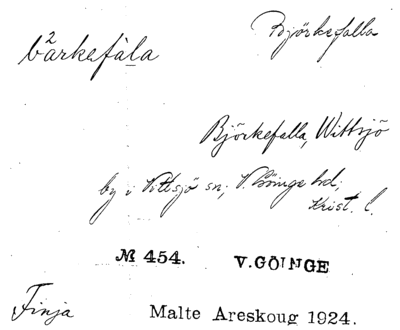 Björkefalla
b²arkefàla
Björkefalla, Wittsjö
by i Vittsjö sn, V. Göinge hd,
Krist. l.
№ 454. V. GÖINGE
Finja
Malte Areskoug 1924.